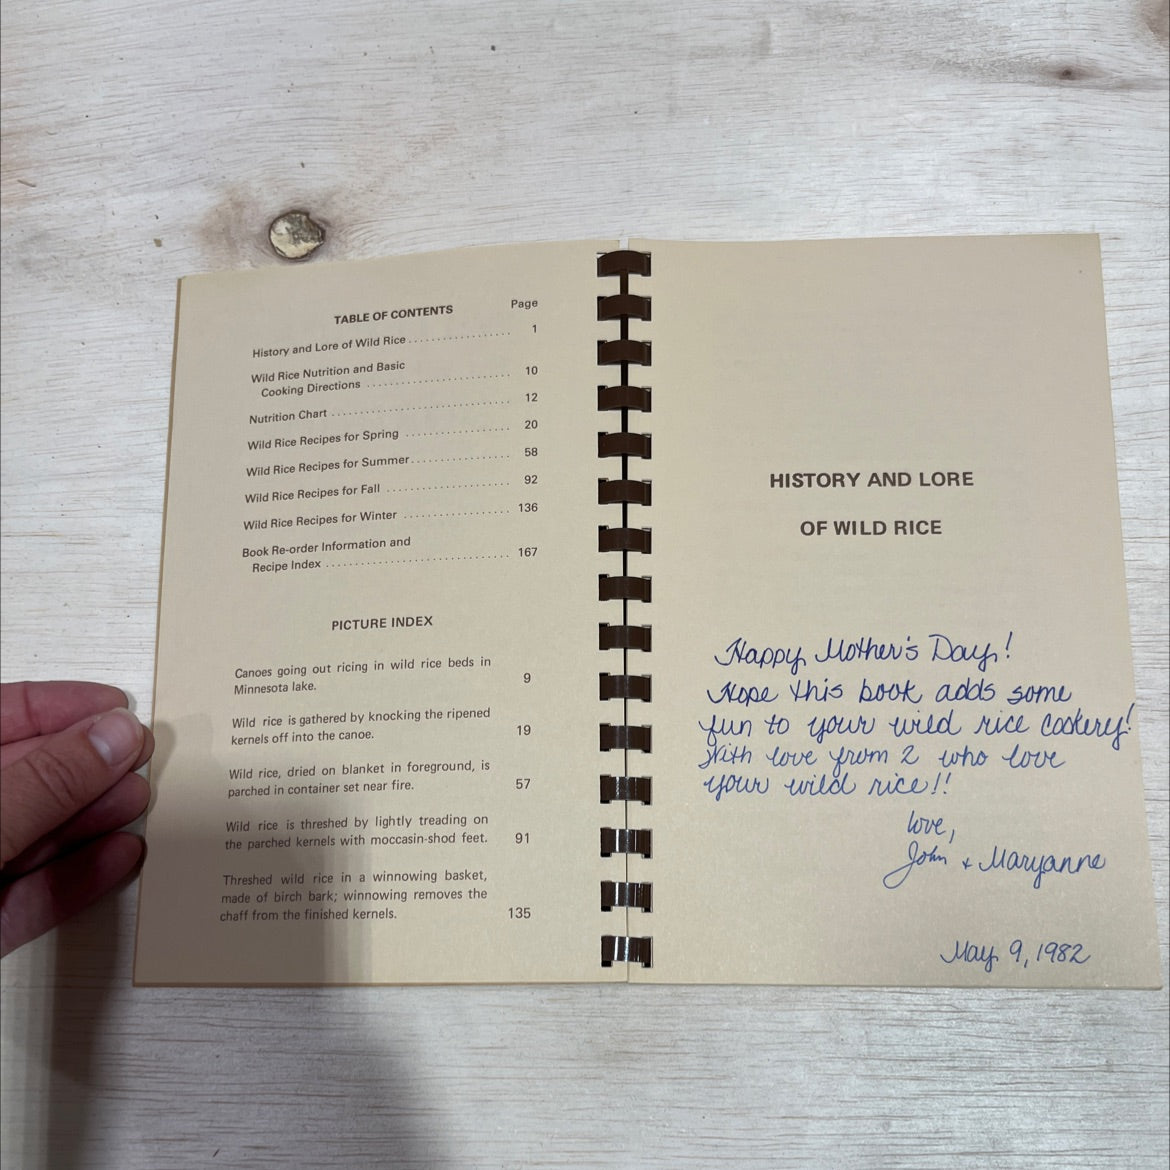 TABLE OF CONTENTS Page
History and Lore of Wild Rice . . . . . . . . . . . . . . . . . 1
Wild Rice Nutrition and Basic
Cooking Directions . . . . . . . . . . . . . . . . . . . . . . . 10
Nutrition Chart . . . . . . . . . . . . . . . . . . . . . . . . . . . . . 12
Wild Rice Recipes for Spring . . . . . . . . . . . . . . . . . 20
Wild Rice Recipes for Summer . . . . . . . . . . . . . . . . 58
Wild Rice Recipes for Fall . . . . . . . . . . . . . . . . . . . . 92
Wild Rice Recipes for Winter . . . . . . . . . . . . . . . . . 136
Book Re-order Information and
Recipe Index . . . . . . . . . . . . . . . . . . . . . . . . . . . . . 167
PICTURE INDEX
Canoes going out ricing in wild rice beds in
Minnesota lake. 9
Wild rice is gathered by knocking the ripened
kernels off into the canoe. 19
Wild rice, dried on blanket in foreground, is
parched in container set near fire. 57
Wild rice is threshed by lightly treading on
the parched kernels with moccasin-shod feet. 91
Threshed wild rice in a winnowing basket,
made of birch bark; winnowing removes the
chaff from the finished kernels. 135
HISTORY AND LORE
OF WILD RICE
Happy Mother's Day!
Hope this book adds some
fun to your wild rice cookery!
With love from 2 who love
your wild rice!!
love,
John + Maryanne
May 9, 1982